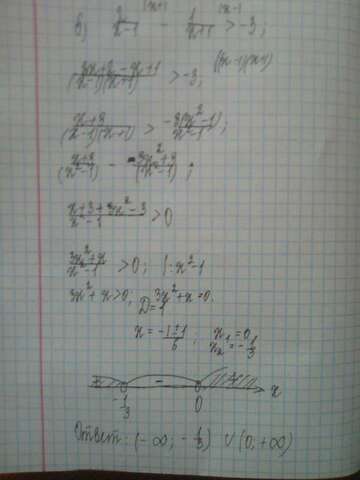 в) 2/(x-1) |x+1 1/(x+1) |x-1 > -3;
(2x+2-x+1)/((x-1)(x+1)) > -3; |(x-1)(x+1)
(x+3)/((x-1)(x+1)) > -3(x²-1)/(x²-1);
(x+3)/(x²-1) - -3x²+3/(x²-1);
(x+3+3x²-3)/(x²-1) > 0
(3x²+x)/(x²-1) > 0; |·x²-1
3x²+x>0; 3x²+x=0.
D=1
x = (-1±1)/6; x₁=0, x₂=-1/3
+ - + x
-1/3 0
Ответ: (-∞; -1/3) ∪ (0; +∞)